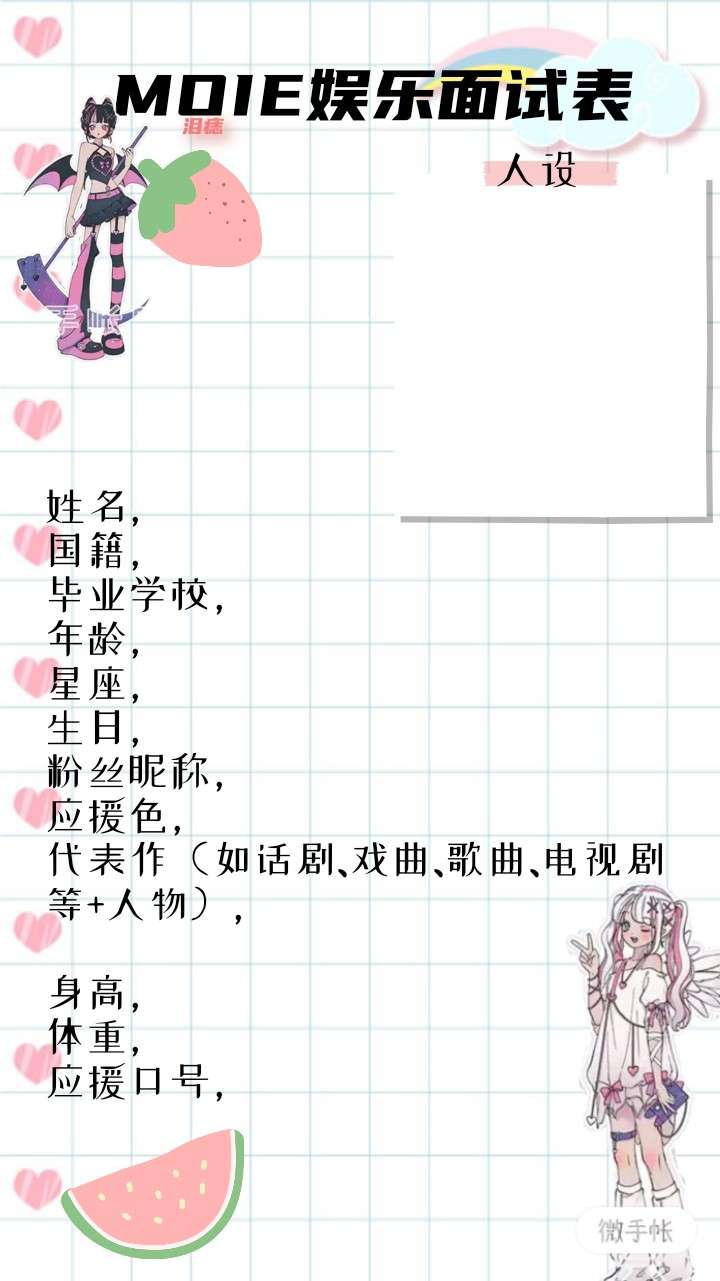 MOIE娱乐面试表
泪痣
人设
姓名,
国籍,
毕业学校,
年龄,
星座,
生日,
粉丝昵称,
应援色,
代表作（如话剧、戏曲、歌曲、电视剧
等+人物）,
身高,
体重,
应援口号,
微手帐